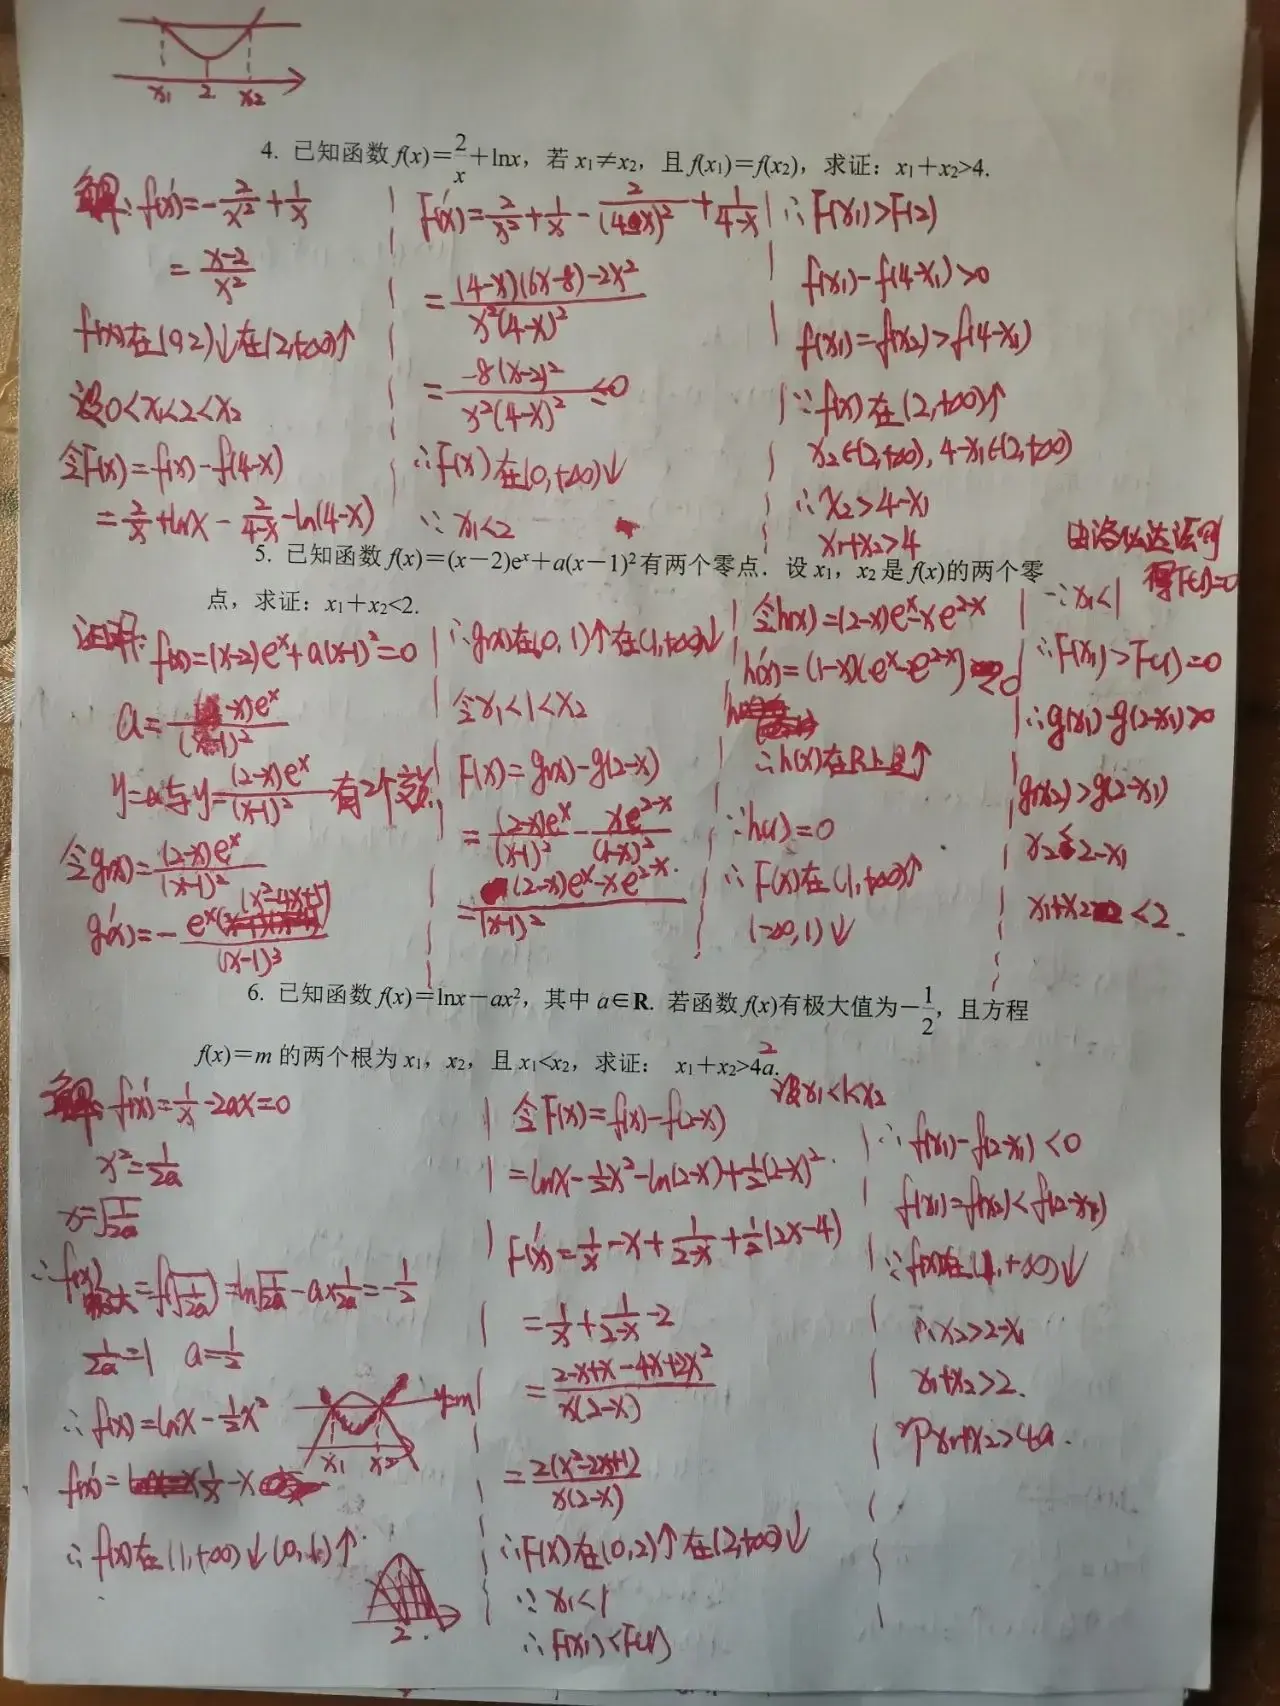 x₁ 2 x₂
4. 已知函数 f(x)=2/x+lnx，若 x₁≠x₂，且 f(x₁)=f(x₂)，求证：x₁+x₂>4.
解: f'(x)=-2/x²+1/x
=(x-2)/x²
f(x)在(0,2)↓在(2,+∞)↑
设0<x₁<2<x₂
令F(x)=f(x)-f(4-x)
=2/x+lnx-2/(4-x)-ln(4-x)
F'(x)=2/x²+1/x-2/(4-x)²+1/(4-x)
=((4-x)(6x-8)-2x²)/(x²(4-x)²)
=-8(x-2)²/(x²(4-x)²)≤0
∴F(x)在(0,+∞)↓
∵x₁<2
∴F(x₁)>F(2)
f(x₁)-f(4-x₁)>0
f(x₁)=f(x₂)>f(4-x₁)
∵f(x)在(2,+∞)↑
x₂∈(2,+∞), 4-x₁∈(2,+∞)
∴x₂>4-x₁
x₁+x₂>4
5. 已知函数 f(x)=(x-2)eˣ+a(x-1)²有两个零点．设 x₁，x₂是 f(x)的两个零
点，求证：x₁+x₂<2.
f(x)=(x-2)eˣ+a(x-1)²=0
a=-x)eˣ/(x-1)²
y=a与y=(2-x)eˣ/(x-1)²有2个交点
令g(x)=(2-x)eˣ/(x-1)²
g'(x)=-eˣ(x²-4x+5)/(x-1)³
∴g(x)在(0,1)↑在(1,+∞)↓
令x₁<1<x₂
F(x)=g(x)-g(2-x)
=(2-x)eˣ/(x-1)²-xe²⁻ˣ/(1-x)²
=((2-x)eˣ-xe²⁻ˣ)/(x-1)²
令h(x)=(2-x)eˣ-xe²⁻ˣ
h'(x)=(1-x)(eˣ-e²⁻ˣ)<0
∴h(x)在R上是↑
∵h(1)=0
∴F(x)在(1,+∞)↑
(-∞,1)↓
由洛必达法则
得F(1)=0
∵x₁<1
∴F(x₁)>F(1)=0
∴g(x₁)-g(2-x₁)>0
g(x₂)>g(2-x₁)
x₂<2-x₁
x₁+x₂<2.
6. 已知函数 f(x)=lnx-ax²，其中 a∈R. 若函数 f(x)有极大值为-1/2，且方程
f(x)=m 的两个根为 x₁，x₂，且 x₁<x₂，求证： x₁+x₂>4a.
2
解: f'(x)=1/x-2ax=0
x²=1/2a
x=√(1/2a)
∴f(x)极大=f(√(1/2a))=ln√(1/2a)-a×1/2a=-1/2
1/2a=1 a=1/2
∴f(x)=lnx-½x²
y=m
x₁ x₂
f'(x)=1/x-x
∴f(x)在(1,+∞)↓(0,1)↑
2
令F(x)=f(x)-f(2-x)
=lnx-½x²-ln(2-x)+½(2-x)²
F'(x)=1/x-x+1/(2-x)+½(2x-4)
=1/x+1/(2-x)-2
=(2-x+x-4x+2x²)/(x(2-x))
=2(x²-2x+1)/(x(2-x))
∴F(x)在(0,2)↑在(2,+∞)↓
∵x₁<1
∴F(x₁)<F(1)
设x₁<1<x₂
∴f(x₁)-f(2-x₁)<0
f(x₁)=f(x₂)<f(2-x₁)
∵f(x)在(1,+∞)↓
∴x₂>2-x₁
x₁+x₂>2.
即x₁+x₂>4a.